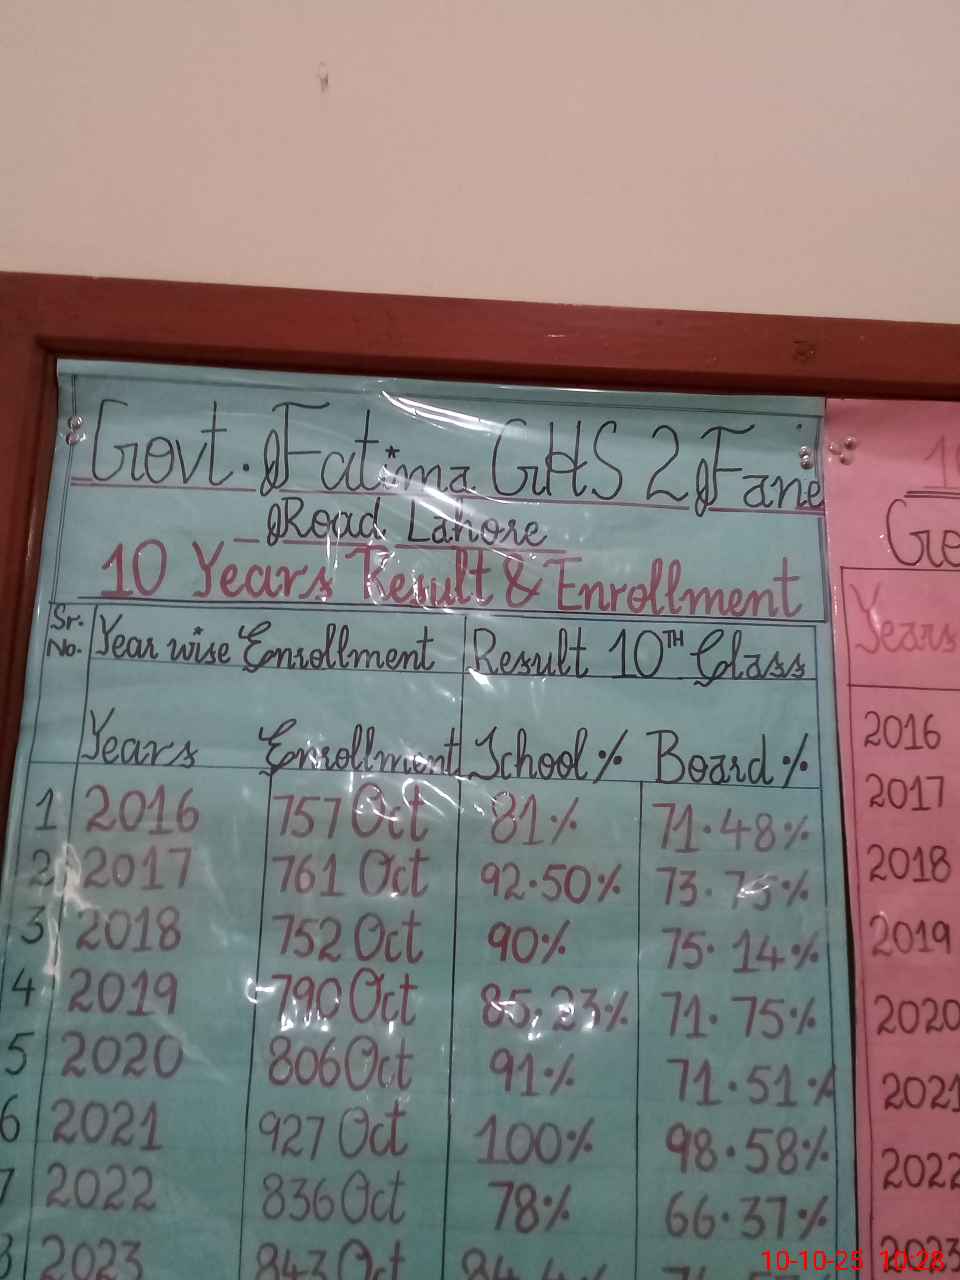 Govt. Fatima GHS 2 Fane
Road Lahore
10 Years Result & Enrollment
Sr. No. Year wise Enrollment Result 10TH Class
Years Enrollment School % Board %
1 2016 757 Oct 81% 71.48%
2 2017 761 Oct 92.50% 73.75%
3 2018 752 Oct 90% 75.14%
4 2019 790 Oct 85.23% 71.75%
5 2020 806 Oct 91% 71.51%
6 2021 927 Oct 100% 98.58%
7 2022 836 Oct 78% 66.37%
2023 843 Oct
10
Ge
Years
2016
2017
2018
2019
2020
2021
2022
2023
10-10-25 10:28